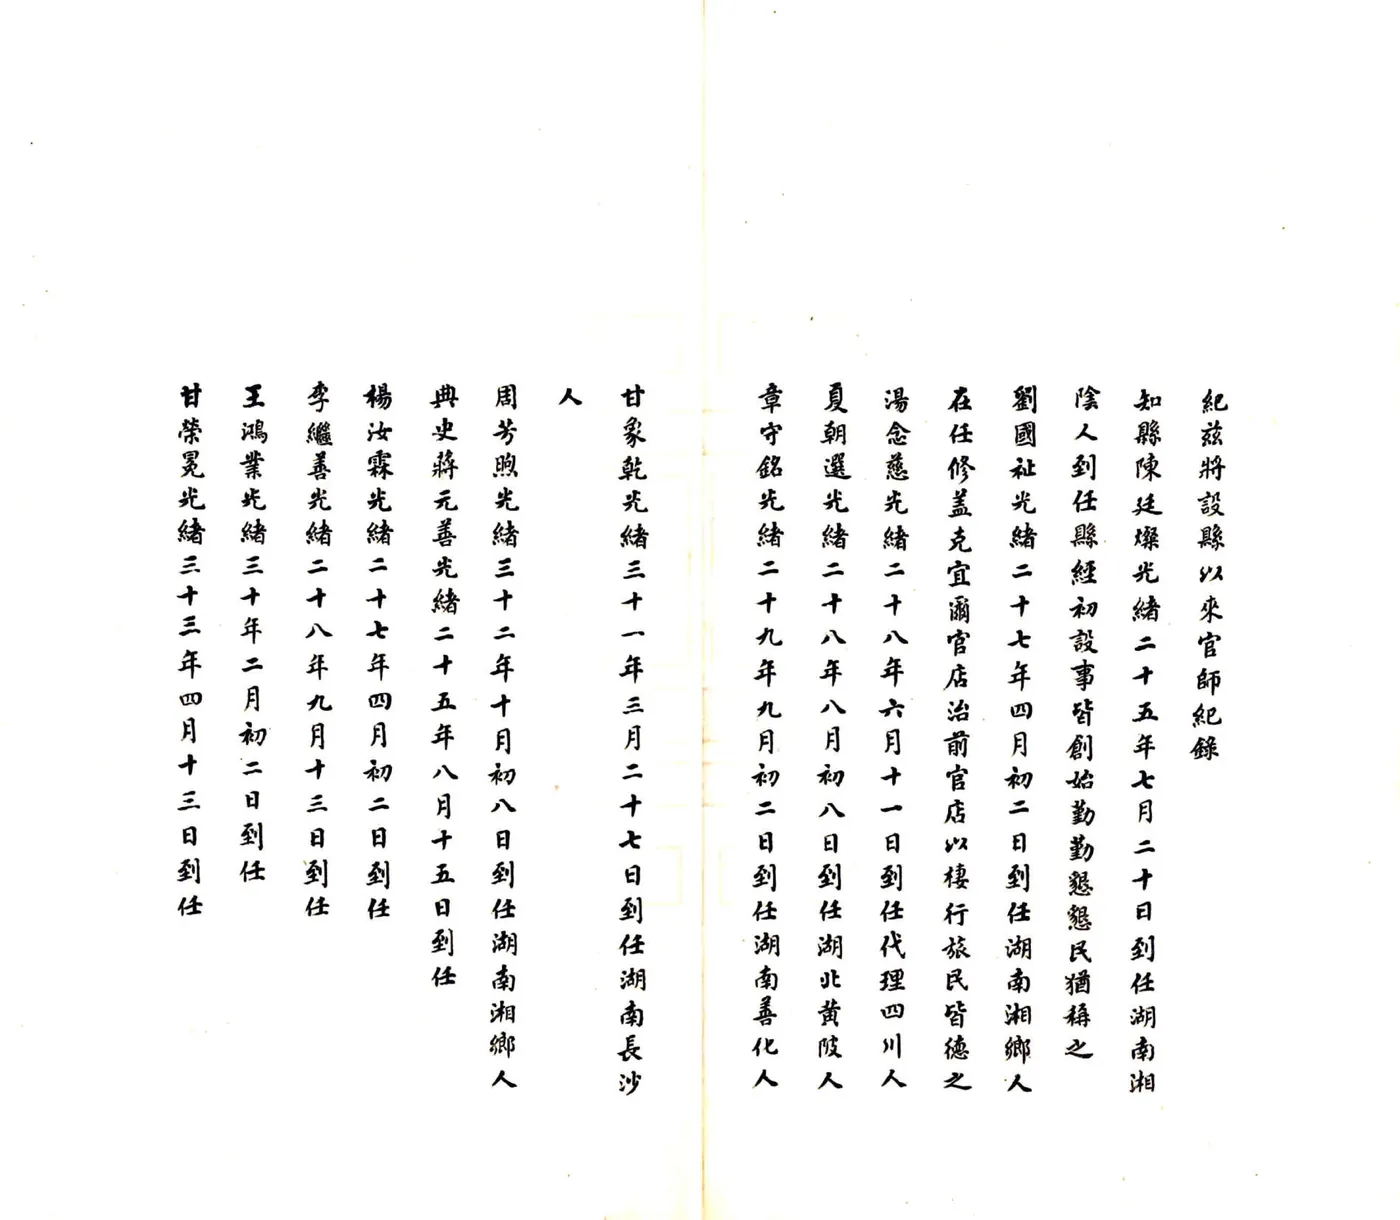 紀茲將設縣以來官師紀錄
知縣陳廷燦光緒二十五年七月二十日到任湖南湘
陰人到任縣經初設事皆創始勤勤懇懇民猶稱之
劉國祉光緒二十七年四月初二日到任湖南湘鄉人
在任修蓋克宜爾官店治前官店以棲行旅民皆德之
湯念慈光緒二十八年六月十一日到任代理四川人
夏朝選光緒二十八年八月初八日到任湖北黃陂人
章守銘光緒二十九年九月初二日到任湖南善化人
甘象乾光緒三十一年三月二十七日到任湖南長沙
人
周芳煦光緒三十二年十月初八日到任湖南湘鄉人
典史蔣元善光緒二十五年八月十五日到任
楊汝霖光緒二十七年四月初二日到任
李繼善光緒二十八年九月十三日到任
王鴻業光緒三十年二月初二日到任
甘榮冕光緒三十三年四月十三日到任